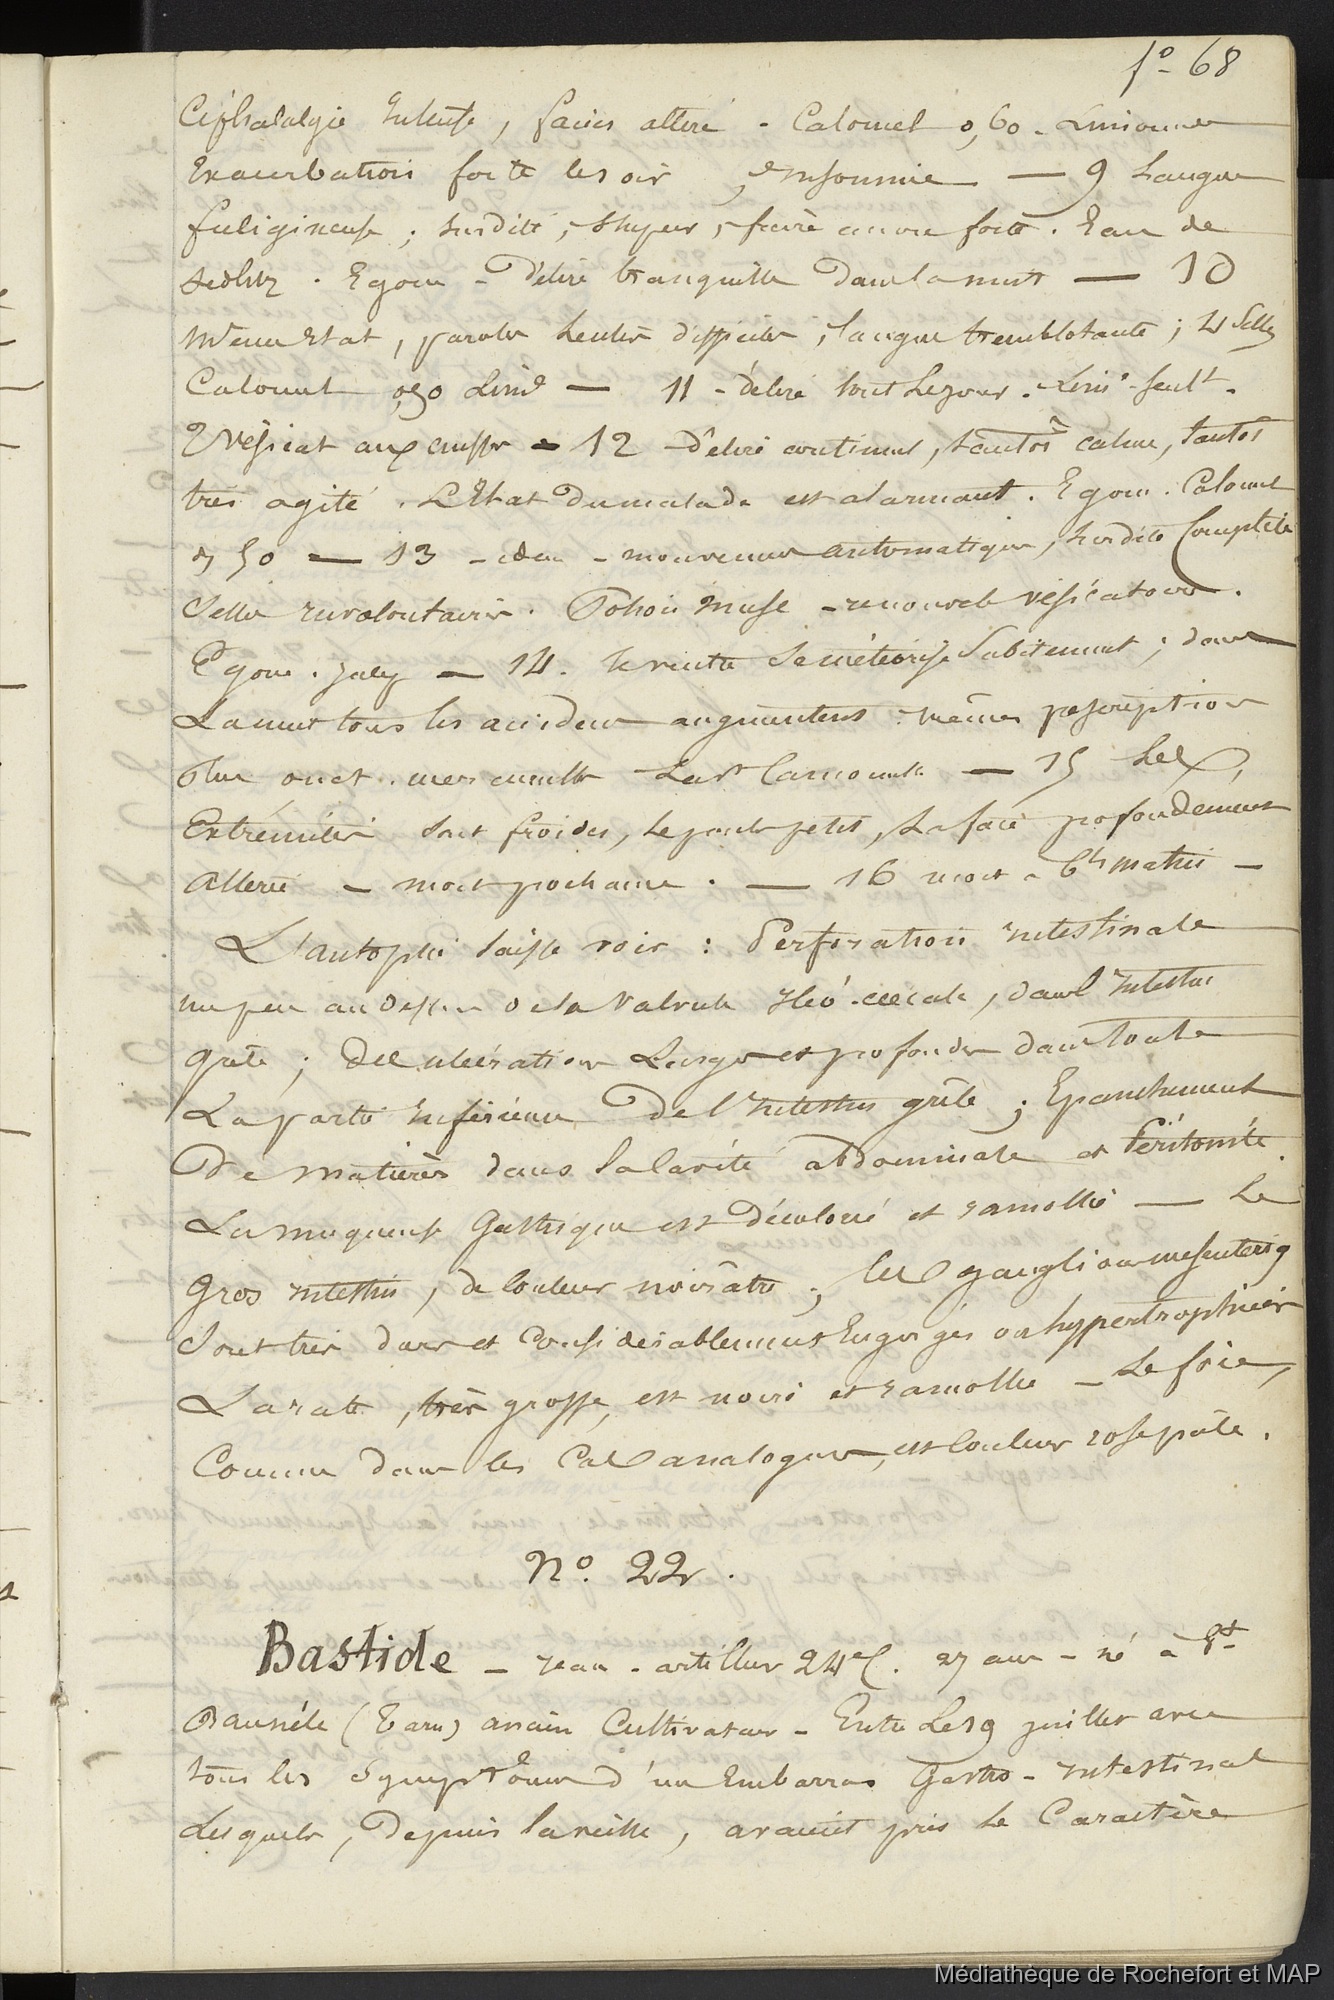 f° 68
Céphalalgie intense, facies altéré - Calomel 0,60 - Limonade
Exacerbation forte le soir, insomnie — 9 Langue
fuligineuse ; surdité, stupeur, fièvre encore forte. Eau de
sedlitz. Egom - Délire tranquille dans la nuit — 10
même Etat, paroles lentes difficiles, langue tremblotante ; 4 Selles
Calomel 0,50 Limde — 11 - délire tout le jour. Lim° seult.
2 Vésicat aux cuisses — 12 - Délire continuel, tantôt calme, tantôt
très agité. L'Etat du malade est alarmant. Egom. Calomel
0,50 — 13 - idem - mouvemens automatiques, surdité Complète
Selles involontaires. Potion Musc - renouvele vésicatoires.
Egom. Julep — 14. le ventre se météorise Subitement ; dans
La nuit tous les accidens augmentent. même prescription
Plus onct. mercurielle Lavt Camomille — 15 Les
Extrémités sont froides, le pouls petit, La face profondément
Altérée — mort prochaine. — 16 mort à 6h matin —
L'autopsie laisse voir : Perforation intestinale
un peu au dessus de la Valvule iléo-cœcale, dans l'intestin
grêle ; des ulcérations Larges et profondes dans toute
La partie inférieure De l'intestin grêle ; Epanchement
De matières dans la Cavité abdominale et Péritonite.
La muqueuse Gastrique est décolorée et ramollie — Le
Gros intestin, de couleur noirâtre ; les ganglions mesenteriq
Sont très durs et considérablement Engorgés ou hypertrophiées
La rate, très grosse, est noire et ramollie — Le foie,
Comme dans les Cas analogues, est couleur rose pâle.
N°. 22.
Bastide - Jean - artilleur 24e C. 27 ans - né à St
Bauzéle (Tarn) ancien Cultivateur - Entre Le 29 juillet avec
tous les Symptômes d'un Embarras Gastro-intestinal
Lesquels, depuis la veille, avaient pris le Caractère
Médiathèque de Rochefort et MAP